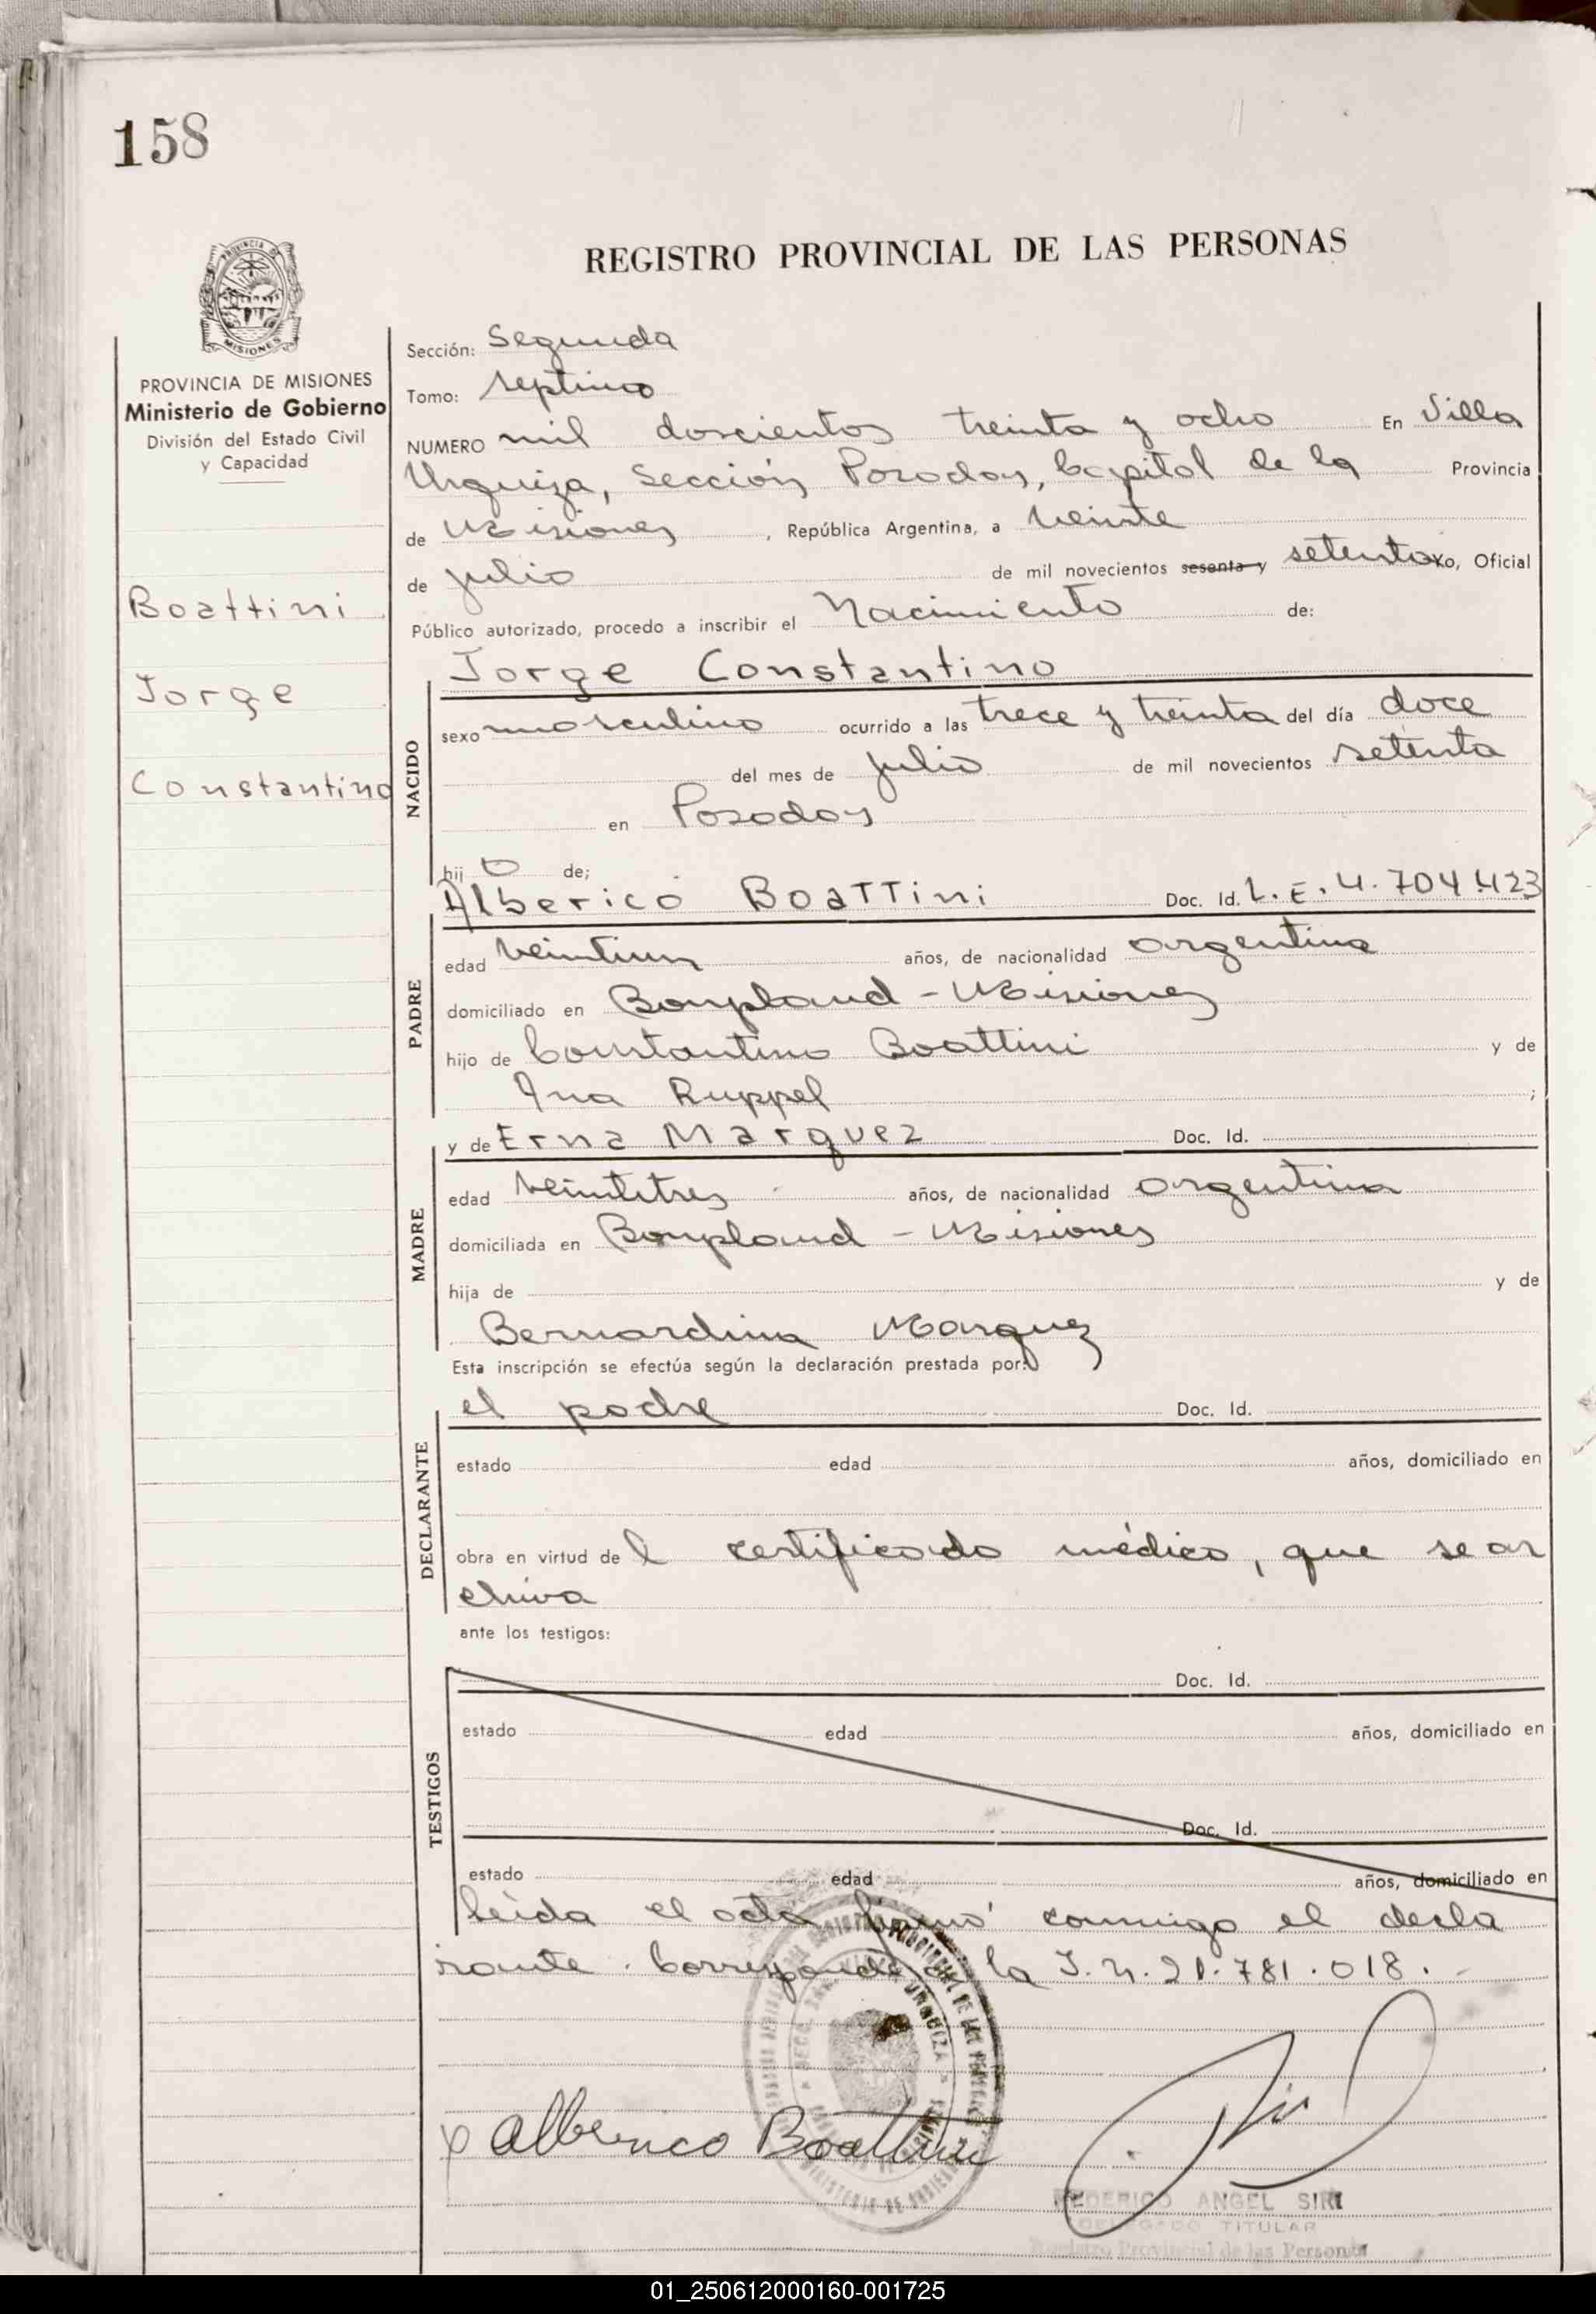 158
REGISTRO PROVINCIAL DE LAS PERSONAS
PROVINCIA DE MISIONES
PROVINCIA DE MISIONES
Ministerio de Gobierno
División del Estado Civil
y Capacidad
Boattini
Jorge
Constantino
Sección: Segunda
Tomo: septimo
NUMERO mil doscientos treinta y ocho En Villa
Urquiza, Sección Posadas, Capital de la Provincia
de Misiones, República Argentina, a veinte
de julio de mil novecientos sesenta y setenta Yo, Oficial
Público autorizado, procedo a inscribir el Nacimiento de:
NACIDO
Jorge Constantino
sexo masculino ocurrido a las trece y treinta del día doce
del mes de julio de mil novecientos setenta
en Posadas
hij o de;
PADRE
Alberico Boattini Doc. Id. L.E. 4.704.423
edad veintiun años, de nacionalidad argentina
domiciliado en Bonpland - Misiones
hijo de Constantino Boattini y de
Ana Ruppel ;
MADRE
y de Erna Marquez Doc. Id.
edad veintitres años, de nacionalidad argentina
domiciliada en Bonpland - Misiones
hija de y de
Bernardina Marquez
Esta inscripción se efectúa según la declaración prestada por:
DECLARANTE
el padre Doc. Id.
estado edad años, domiciliado en
obra en virtud de l certificado médico, que se ar
chiva
ante los testigos:
TESTIGOS
Doc. Id.
estado edad años, domiciliado en
Doc. Id.
estado edad años, domiciliado en
leída el acta firmó conmigo el decla
rante. Corresponde a la I.N. 21.781.018.-
Alberico Boattini
FEDERICO ANGEL SIRI
DELEGADO TITULAR
Registro Provincial de las Personas
01_250612000160-001725